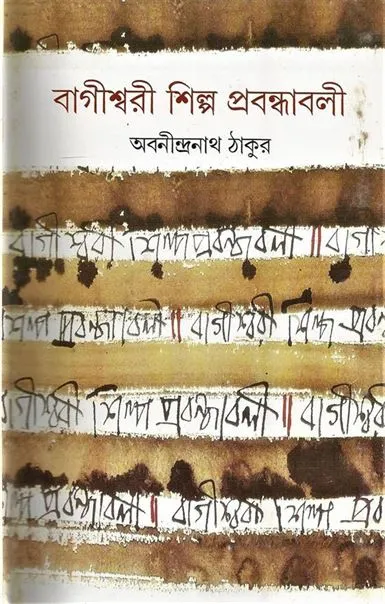 বাগীশ্বরী শিল্প প্রবন্ধাবলী
অবনীন্দ্রনাথ ঠাকুর
বাগীশ্বরী শিল্প প্রবন্ধাবলী || বাগী
শিল্প প্রবন্ধাবলী || বাগীশ্বরী শিল্প প্রবন
বাগীশ্বরী শিল্প প্রবন্ধাবলী || বাগীশ্বরী
প্রবন্ধাবলী || বাগীশ্বরী শিল্প প্রব